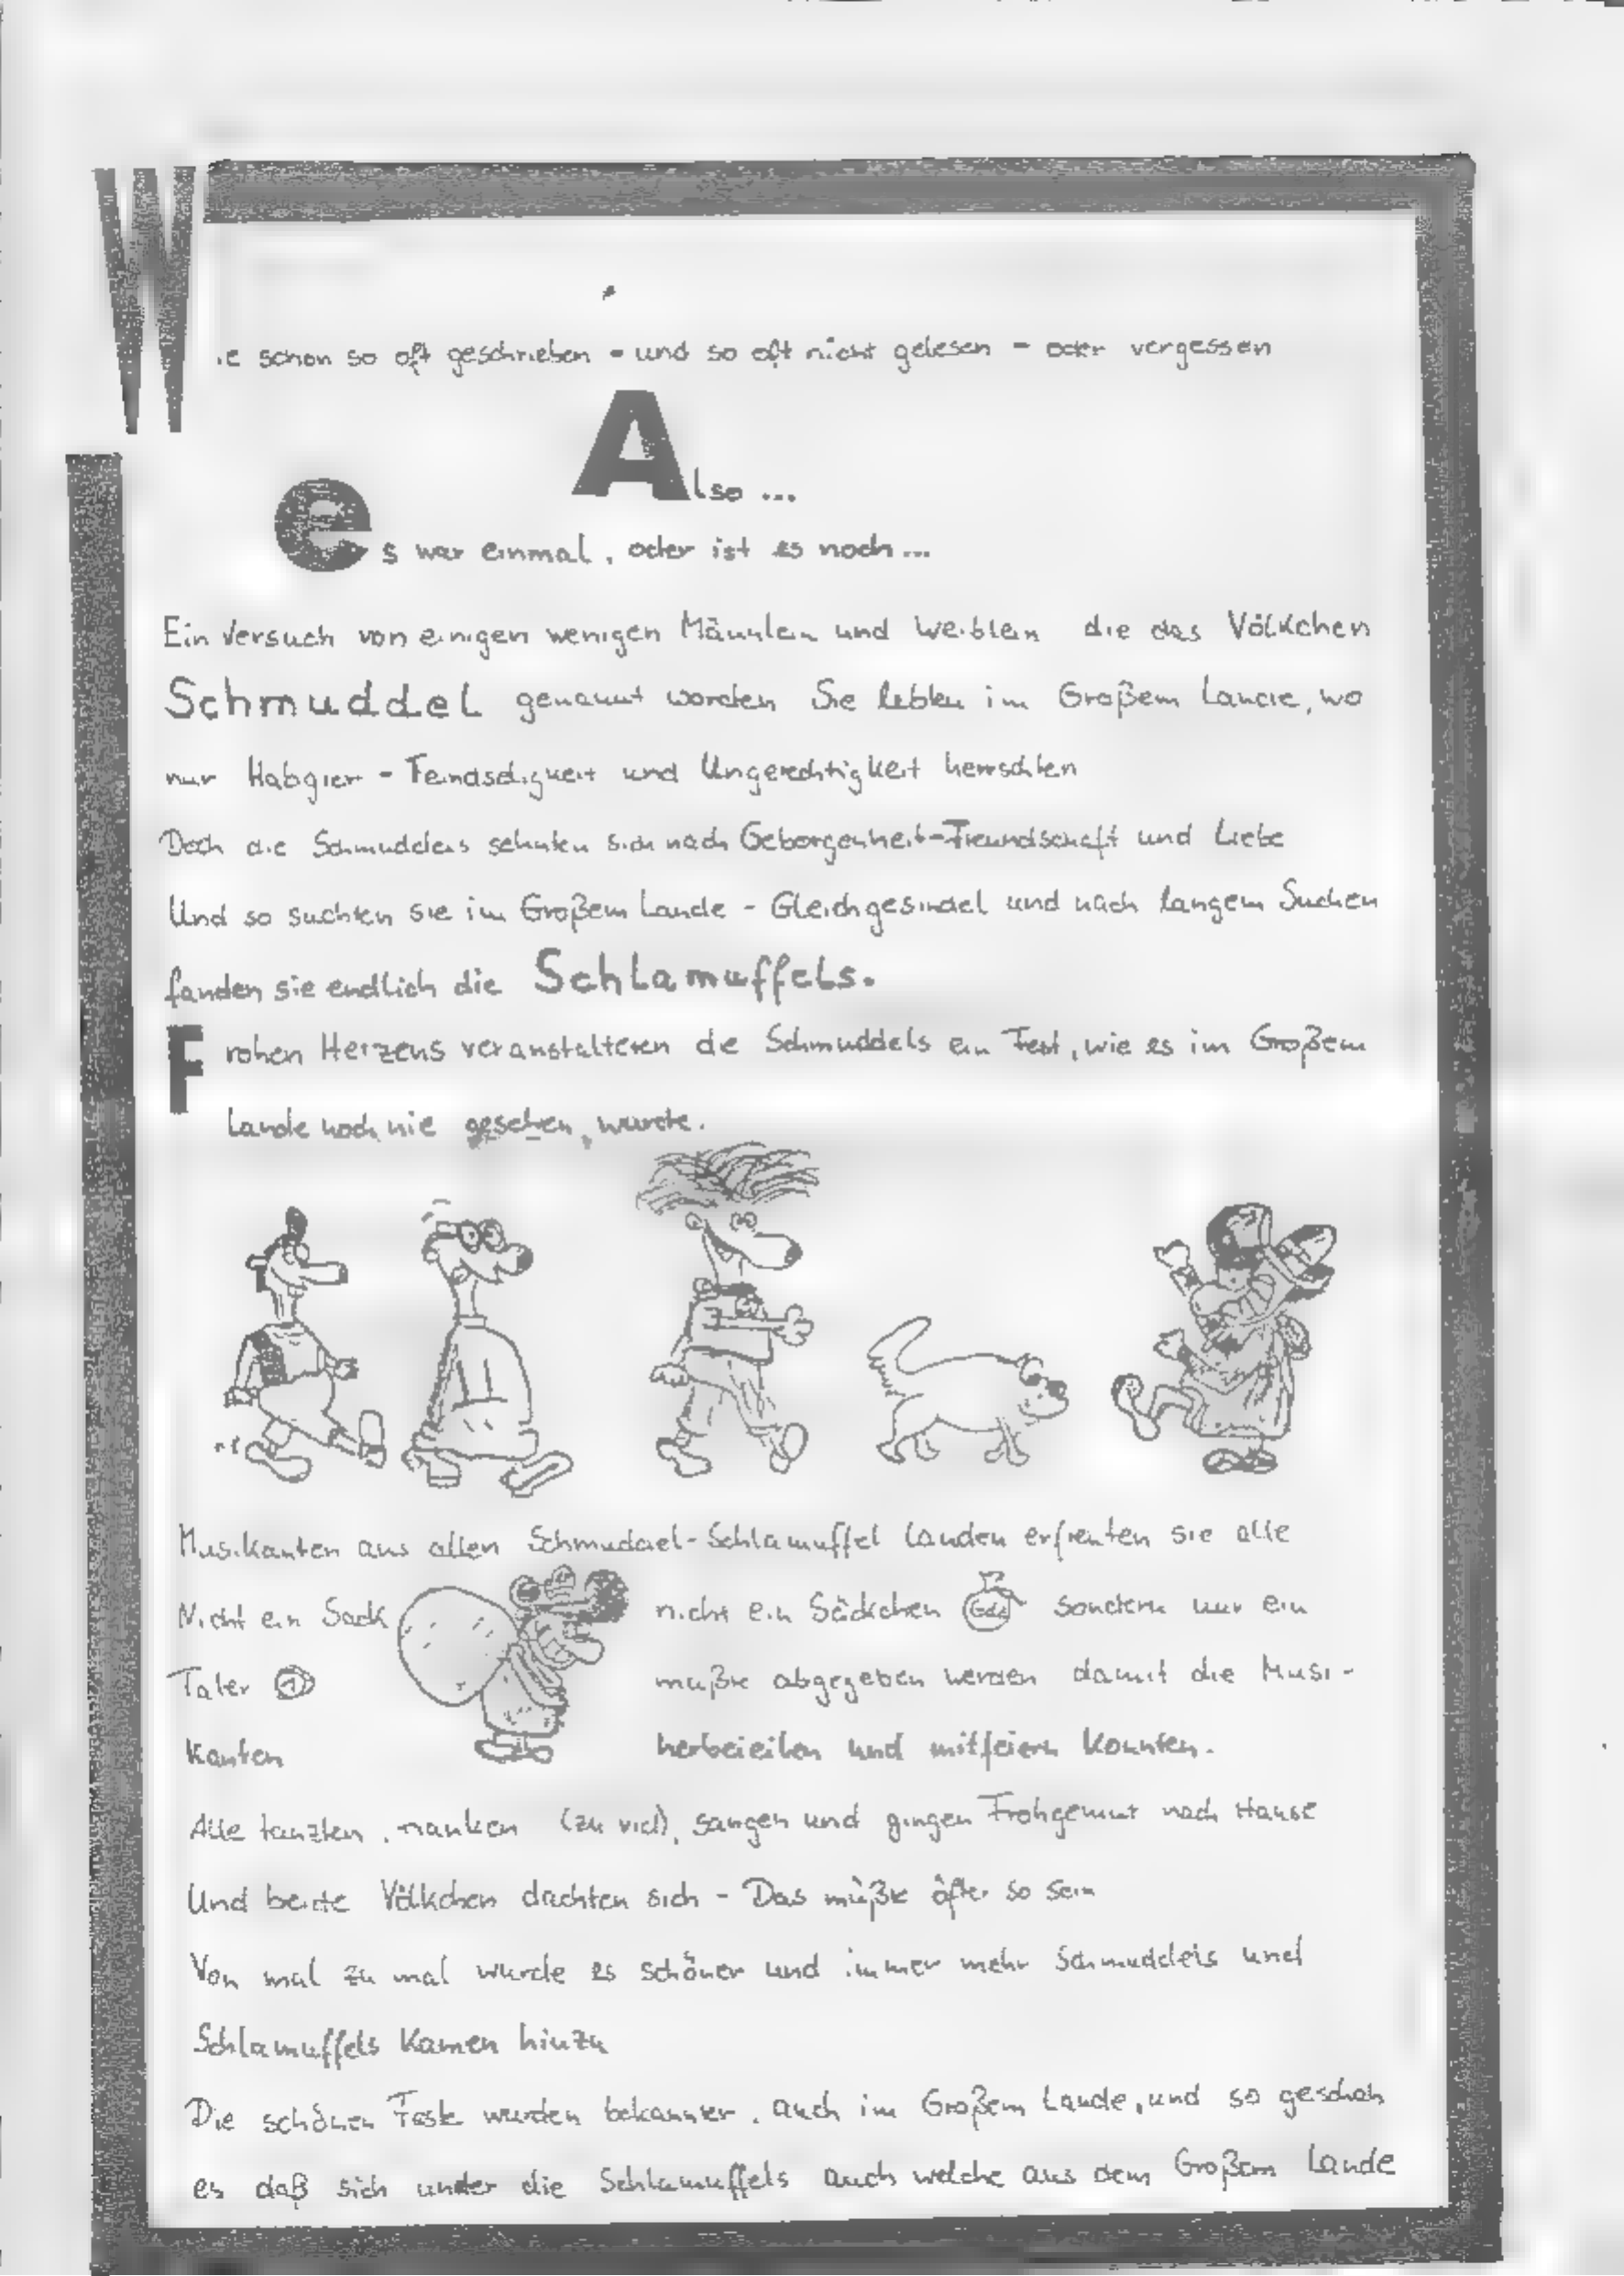 Wie schon so oft geschrieben - und so oft nicht gelesen - oder vergessen
Also ...
es war einmal, oder ist es noch ...
Ein Versuch von einigen wenigen Männlein und Weiblein die das Völkchen
Schmuddel genannt worden Sie lebten im Großem Lande, wo
nur Habgier - Feindseligkeit und Ungerechtigkeit herrschten
Doch die Schmuddels sehnten sich nach Geborgenheit-Freundschaft und Liebe
Und so suchten sie im Großem Lande - Gleichgesindel und nach langem Suchen
fanden sie endlich die Schlamuffels.
Frohen Herzens veranstalteten die Schmuddels ein Fest, wie es im Großem
Lande noch nie gesehen wurde.
Musikanten aus allen Schmuddel-Schlamuffel Landen erfreuten sie alle
Nicht ein Sack nicht ein Säckchen Geld sondern nur ein
Taler 1 mußte abgegeben werden damit die Musi-
kanten herbeieilen und mitfeiern konnten.
Alle tanzten, tranken (zu viel), sangen und gingen Frohgemut nach Hause
Und beide Völkchen dachten sich - Das müßte öfter so sein
Von mal zu mal wurde es schöner und immer mehr Schmuddels und
Schlamuffels kamen hinzu
Die schönen Feste wurden bekannter, auch im Großem Lande, und so geschah
es daß sich unter die Schlamuffels auch welche aus dem Großem Lande